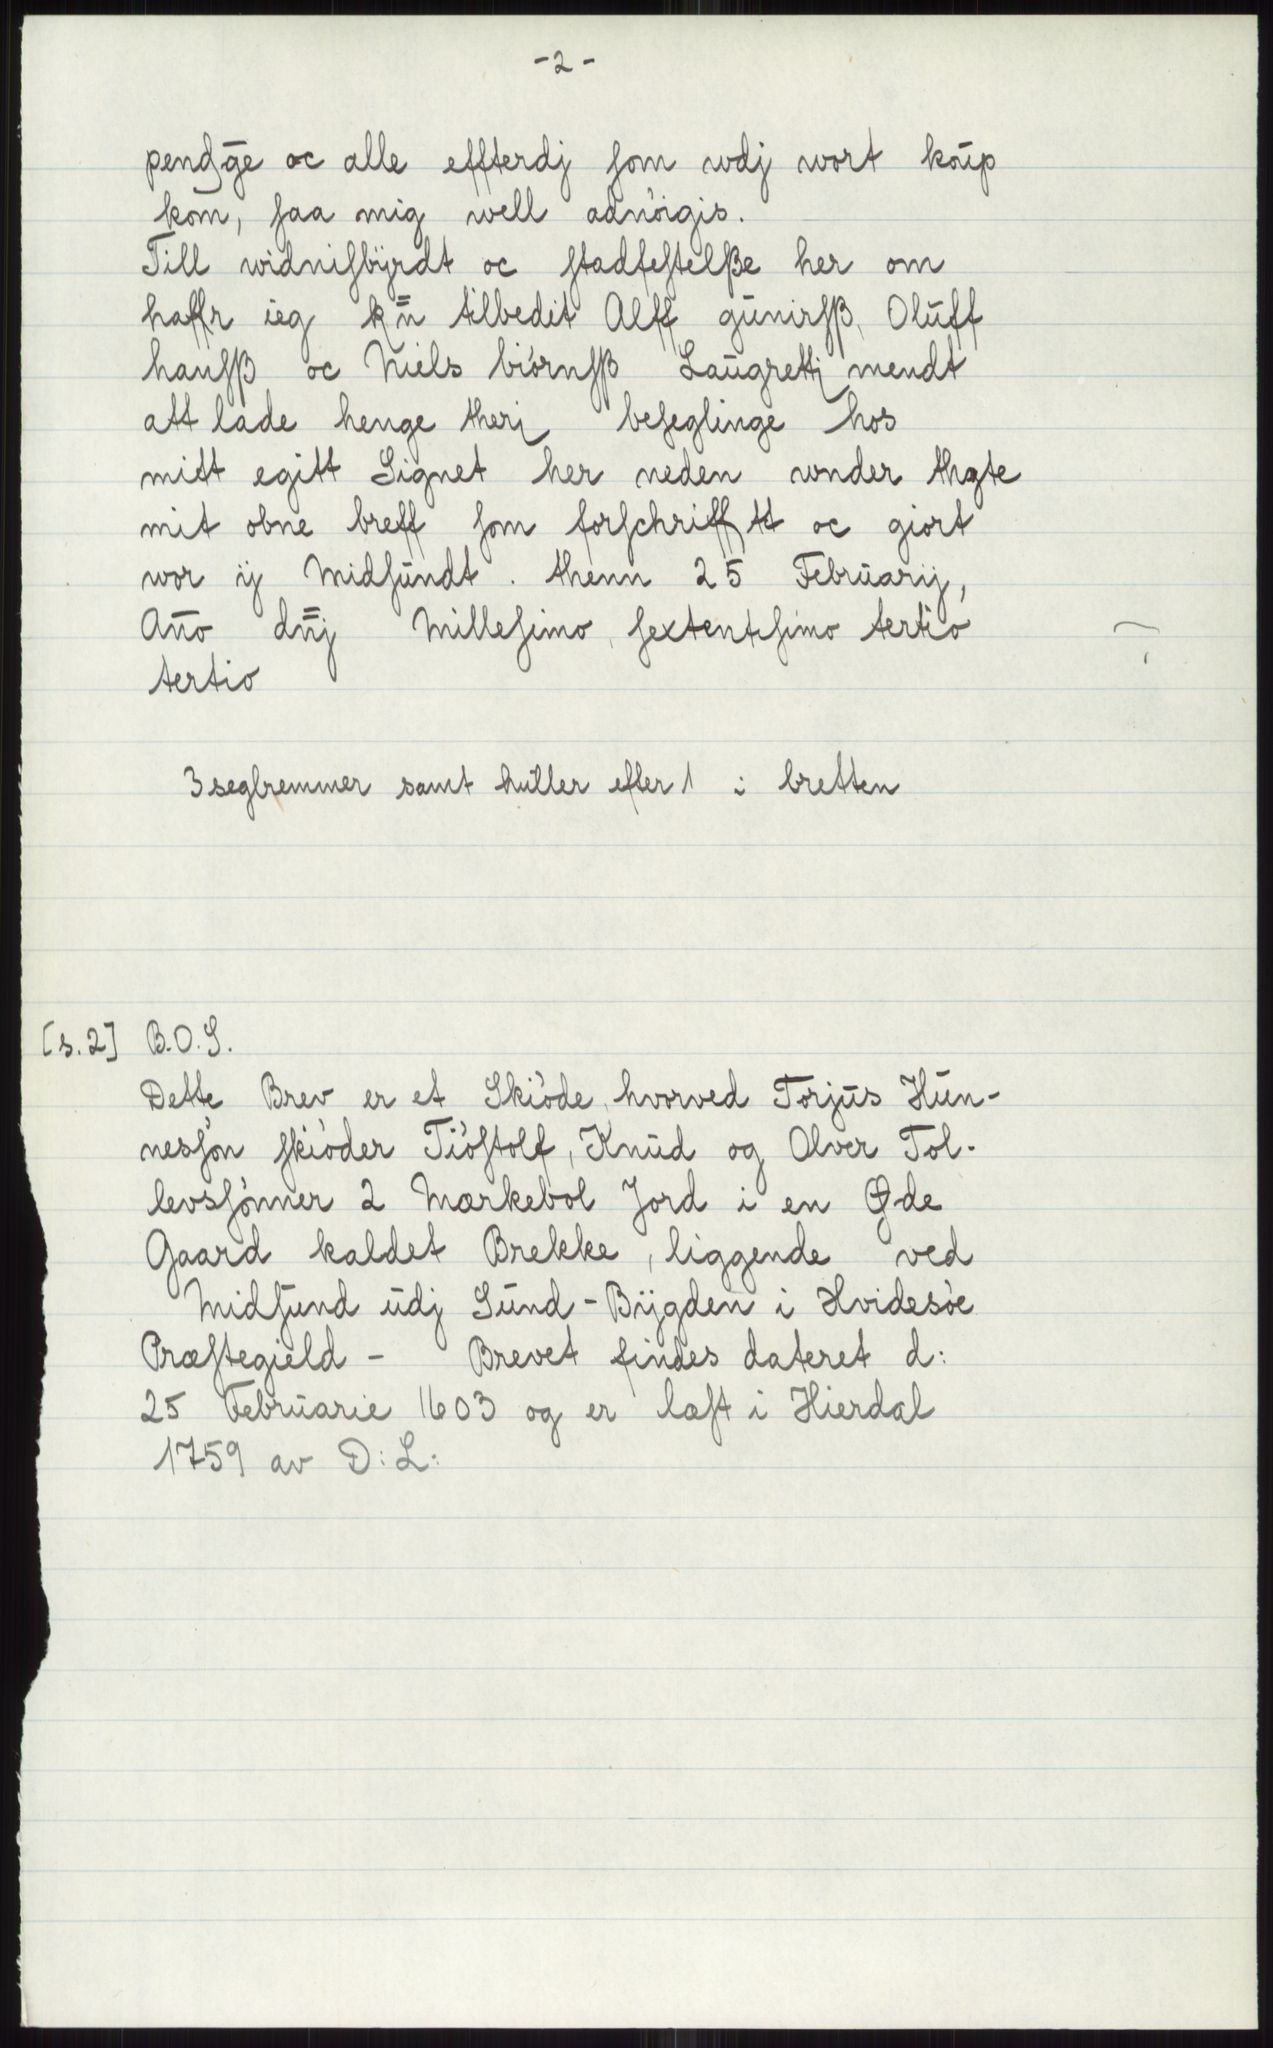 -2-
pendgē oc alle effterdj som wdj wort koup
kom, saa mig well adnöigis.
Till widnisbÿrdt oc stadfestelße her om
haffr ieg kn̄ tilbedit Alff gunirsß, Oluff
hansß oc Niels biörnsß Laugrettj mendt
att lade henge therj beseglinge hos
mitt egitt Signet her neden wnder thgte
mit obne breff som forschrifftt oc giort
wor ij Midsundt. thenn 25 Februarij,
An̄o dn̄j Millesimo, sextentisimo tertio
tertio
3 seglremmer samt huller efter 1 i bretten
[s.2] B.O.S.
Dette Brev er et Skiöde, hvorved Torjus Hun-
nessön skiöder Tiöstolf, Knud og Olver Tol-
levssönner 2 Mærkebol Jord i en Øde
Gaard kaldet Brekke, liggende ved
Midsund udj Sund-Bÿgden i Hvidesöe
Præstegield - Brevet findes dateret d:
25 Februarie 1603 og er læst i Hierdal
1759 av D:L: